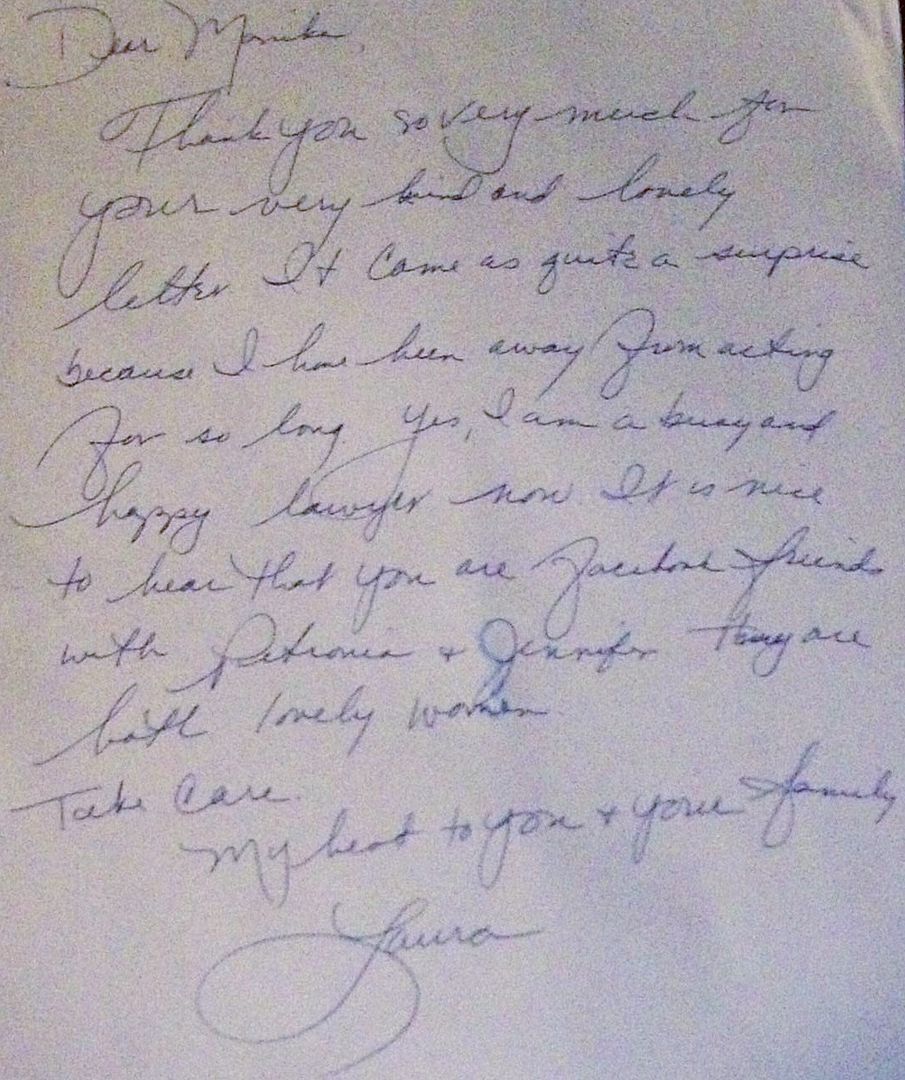 Dear Monika,
Thank you so very much for
your very kind and lovely
letter It came as quite a surprise
because I have been away from acting
for so long Yes, I am a busy and
happy lawyer now. It is nice
to hear that you are Facebook friends
with Petronia + Jennifer They are
both lovely women
Take Care.
My best to you + your family
Laura